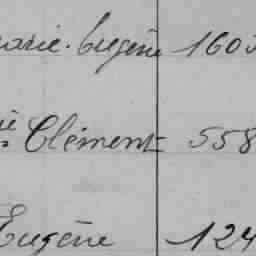 marie. Eugène 1605
Clément 558
Eugène 124